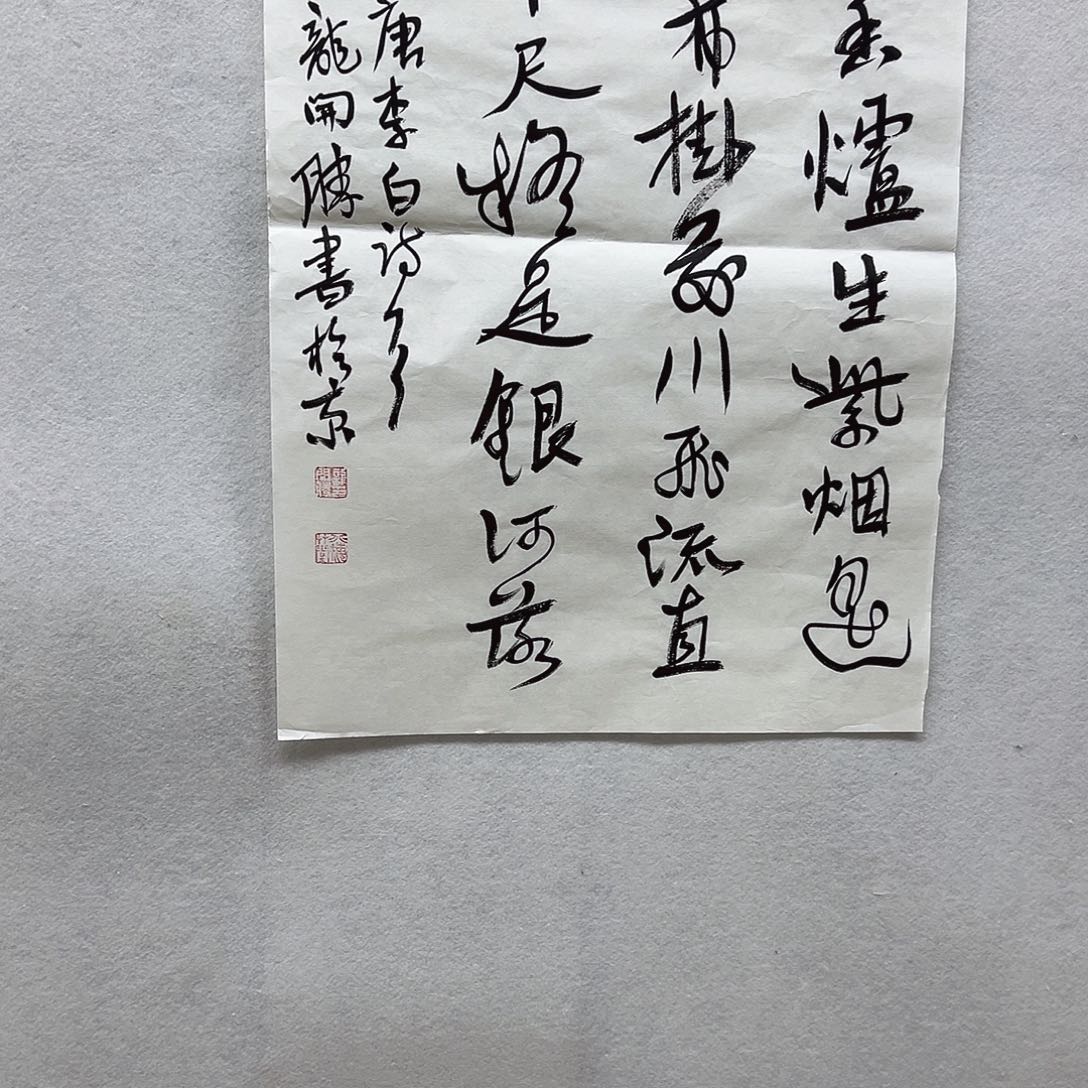 香爐生紫烟遥
布掛前川飛流直
千尺疑是銀河落
唐李白诗一首
龍開勝書於京